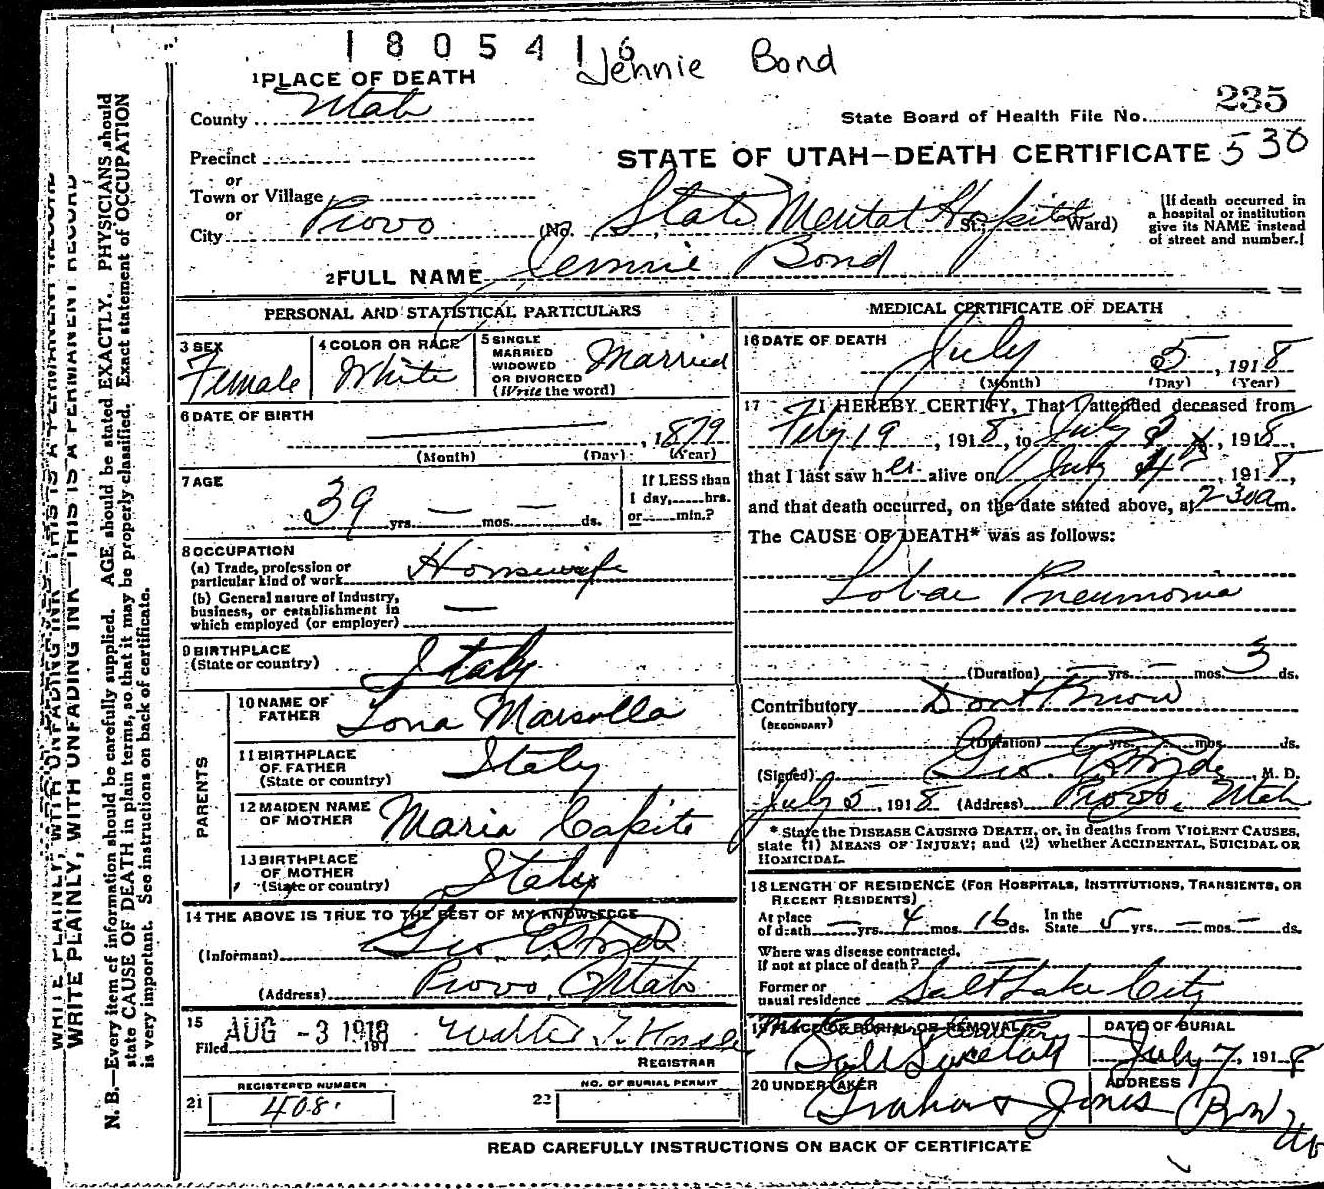 1805416
Jennie Bond
1 PLACE OF DEATH
235
County Utah
State Board of Health File No.
530
Precinct
STATE OF UTAH—DEATH CERTIFICATE
or
Town or Village
or
City Provo (No. State Mental Hospital St.; Ward)
[If death occurred in
a hospital or institution
give its NAME instead
of street and number.]
2 FULL NAME Jennie Bond
PERSONAL AND STATISTICAL PARTICULARS
3 SEX
Female
4 COLOR OR RACE
White
5 SINGLE
MARRIED
WIDOWED
OR DIVORCED
(Write the word)
Married
6 DATE OF BIRTH
, 1879
(Month) (Day) (Year)
7 AGE
39 yrs. — mos. — ds.
If LESS than
1 day, hrs.
or min.?
8 OCCUPATION
(a) Trade, profession or
particular kind of work Housewife
(b) General nature of Industry,
business, or establishment in
which employed (or employer) —
9 BIRTHPLACE
(State or country) Italy
PARENTS
10 NAME OF
FATHER Marsolla
11 BIRTHPLACE
OF FATHER
(State or country) Italy
12 MAIDEN NAME
OF MOTHER Maria Capite
13 BIRTHPLACE
OF MOTHER
(State or country) Italy
14 THE ABOVE IS TRUE TO THE BEST OF MY KNOWLEDGE
(Informant) Geo. E. Hyde
(Address) Provo, Utah
15
Filed AUG -3 1918 191
Walter T.
REGISTRAR
REGISTERED NUMBER
21 408
NO. OF BURIAL PERMIT
22
MEDICAL CERTIFICATE OF DEATH
16 DATE OF DEATH
July 5, 1918
(Month) (Day) (Year)
17 I HEREBY CERTIFY, That I attended deceased from
Feby 19, 1918, to July, 1918,
that I last saw her alive on July 4, 1918,
and that death occurred, on the date stated above, at 2 30 a m.
The CAUSE OF DEATH* was as follows:
Lobar Pneumonia
(Duration) — yrs. — mos. 3 ds.
Contributory Dont Know
(SECONDARY)
(Duration) yrs. mos. ds.
(Signed) Geo. E. Hyde, M. D.
July 5, 1918 (Address) Provo, Utah
* State the DISEASE CAUSING DEATH, or, in deaths from VIOLENT CAUSES,
state (1) MEANS OF INJURY; and (2) whether ACCIDENTAL, SUICIDAL OR
HOMICIDAL.
18 LENGTH OF RESIDENCE (FOR HOSPITALS, INSTITUTIONS, TRANSIENTS, OR
RECENT RESIDENTS)
At place
of death — yrs. 4 mos. 16 ds.
In the
State 5 yrs. — mos. — ds.
Where was disease contracted,
If not at place of death?
Former or
usual residence Salt Lake City
19 PLACE OF BURIAL OR REMOVAL
Cemetery
Salt Lake
DATE OF BURIAL
July 7, 1918
20 UNDERTAKER
Graham & Jones
ADDRESS
READ CAREFULLY INSTRUCTIONS ON BACK OF CERTIFICATE
WRITE PLAINLY, WITH UNFADING INK—THIS IS A PERMANENT RECORD
WRITE PLAINLY, WITH UNFADING INK—THIS IS A PERMANENT RECORD
N. B.—Every item of information should be carefully supplied. AGE should be stated EXACTLY. PHYSICIANS should
state CAUSE OF DEATH in plain terms, so that it may be properly classified. Exact statement of OCCUPATION
is very important. See instructions on back of certificate.